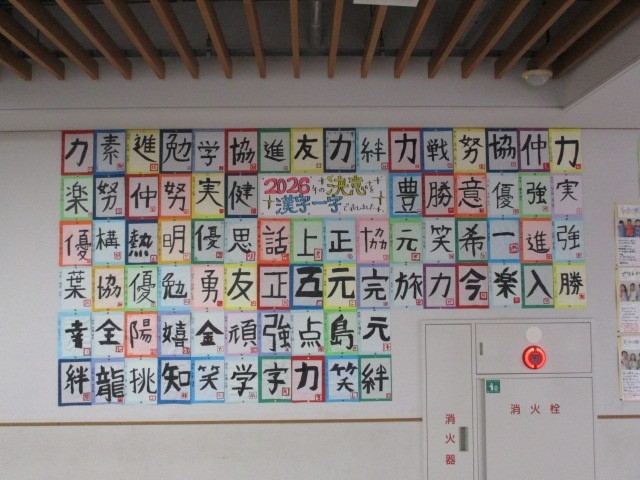 力素進勉学協進友力絆力戦努協仲力
楽努仲努実健
2026年の決意を
漢字一字で表しました。
豊勝意優強実
優構熱明優思話上正協元笑希一進強
葉協優勉勇友正五元完旅力今楽入勝
幸全陽嬉金頑強点島元
絆龍挑知笑学字力笑絆
消火器
消火栓